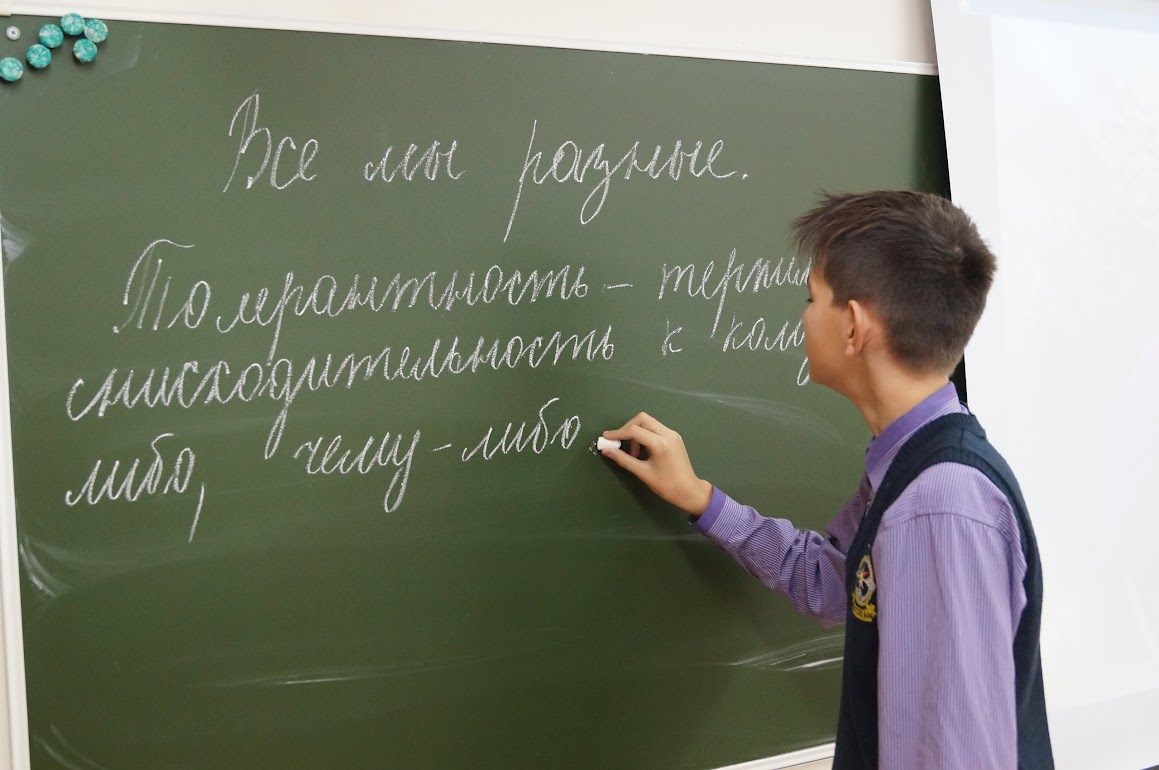 Все мы разные.
Толерантность – терпим
снисходительность к кому
либо, чему-либо.